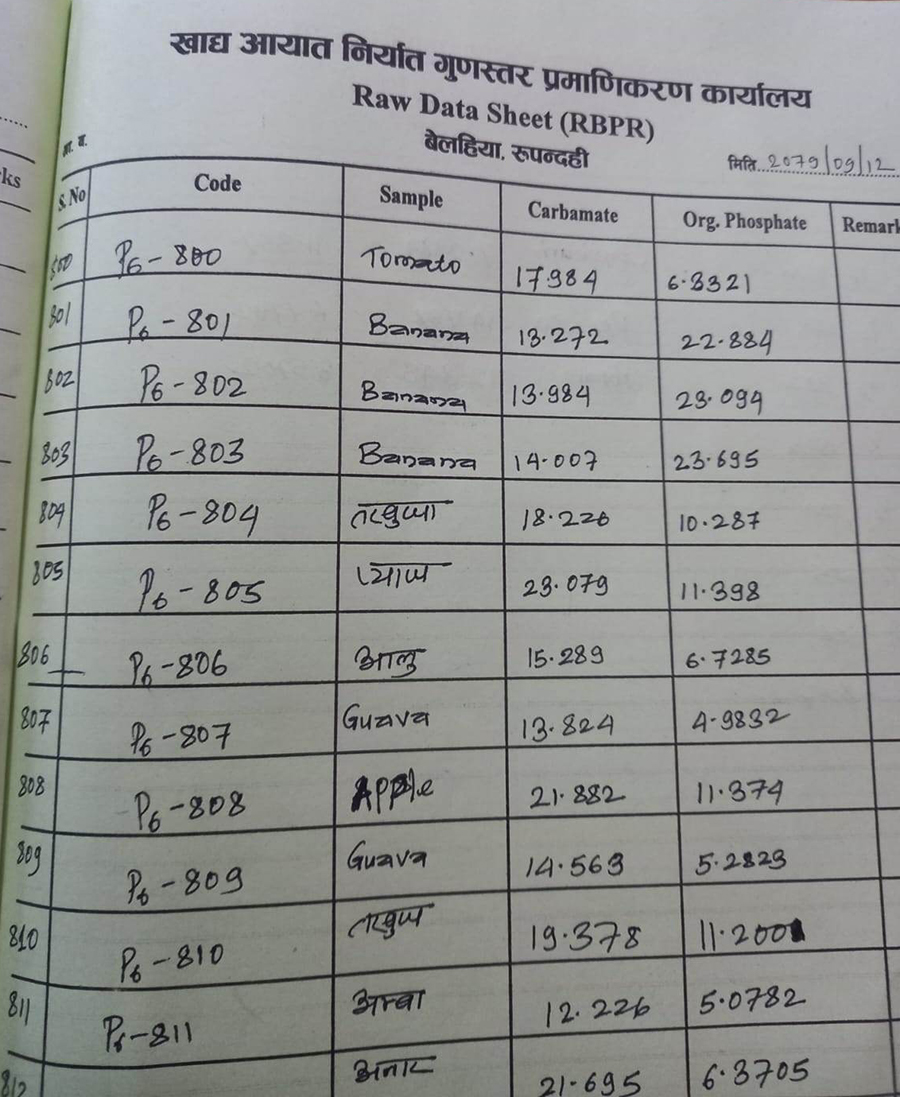 खाद्य आयात निर्यात गुणस्तर प्रमाणिकरण कार्यालय
Raw Data Sheet (RBPR)
बेलहिया, रुपन्देही
मिति 2079/09/12
ks
S.No Code Sample Carbamate Org. Phosphate Remark
800 P6-800 Tomato 17.984 6.8321
801 P6-801 Banana 13.272 22.884
802 P6-802 Banana 13.984 23.094
803 P6-803 Banana 14.007 23.695
804 P6-804 18.226 10.287
805 P6-805 प्याज 23.079 11.398
806 P6-806 आलु 15.289 6.7285
807 P6-807 Guava 13.824 4.9832
808 P6-808 Apple 21.882 11.374
809 P6-809 Guava 14.563 5.2823
810 P6-810 19.378 11.2001
811 P6-811 अम्बा 12.226 5.0782
812 अनार 21.695 6.3705